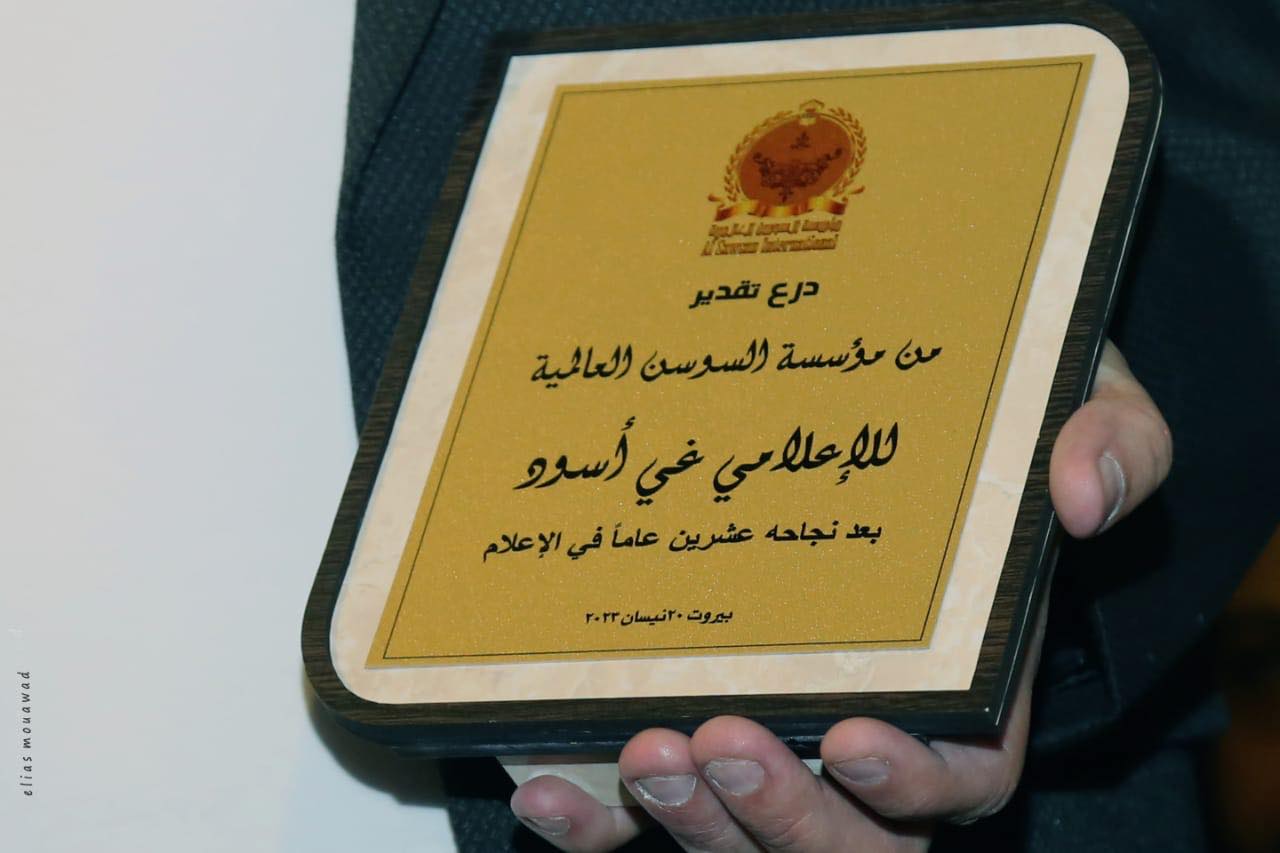 مؤسسة السوسن العالمية
Al Sawsan International
درع تقدير
من مؤسسة السوسن العالمية
للإعلامي غي أسود
بعد نجاحه عشرين عاماً في الإعلام
بيروت ٢٠ نيسان ٢٠٢٣
elias mouawad